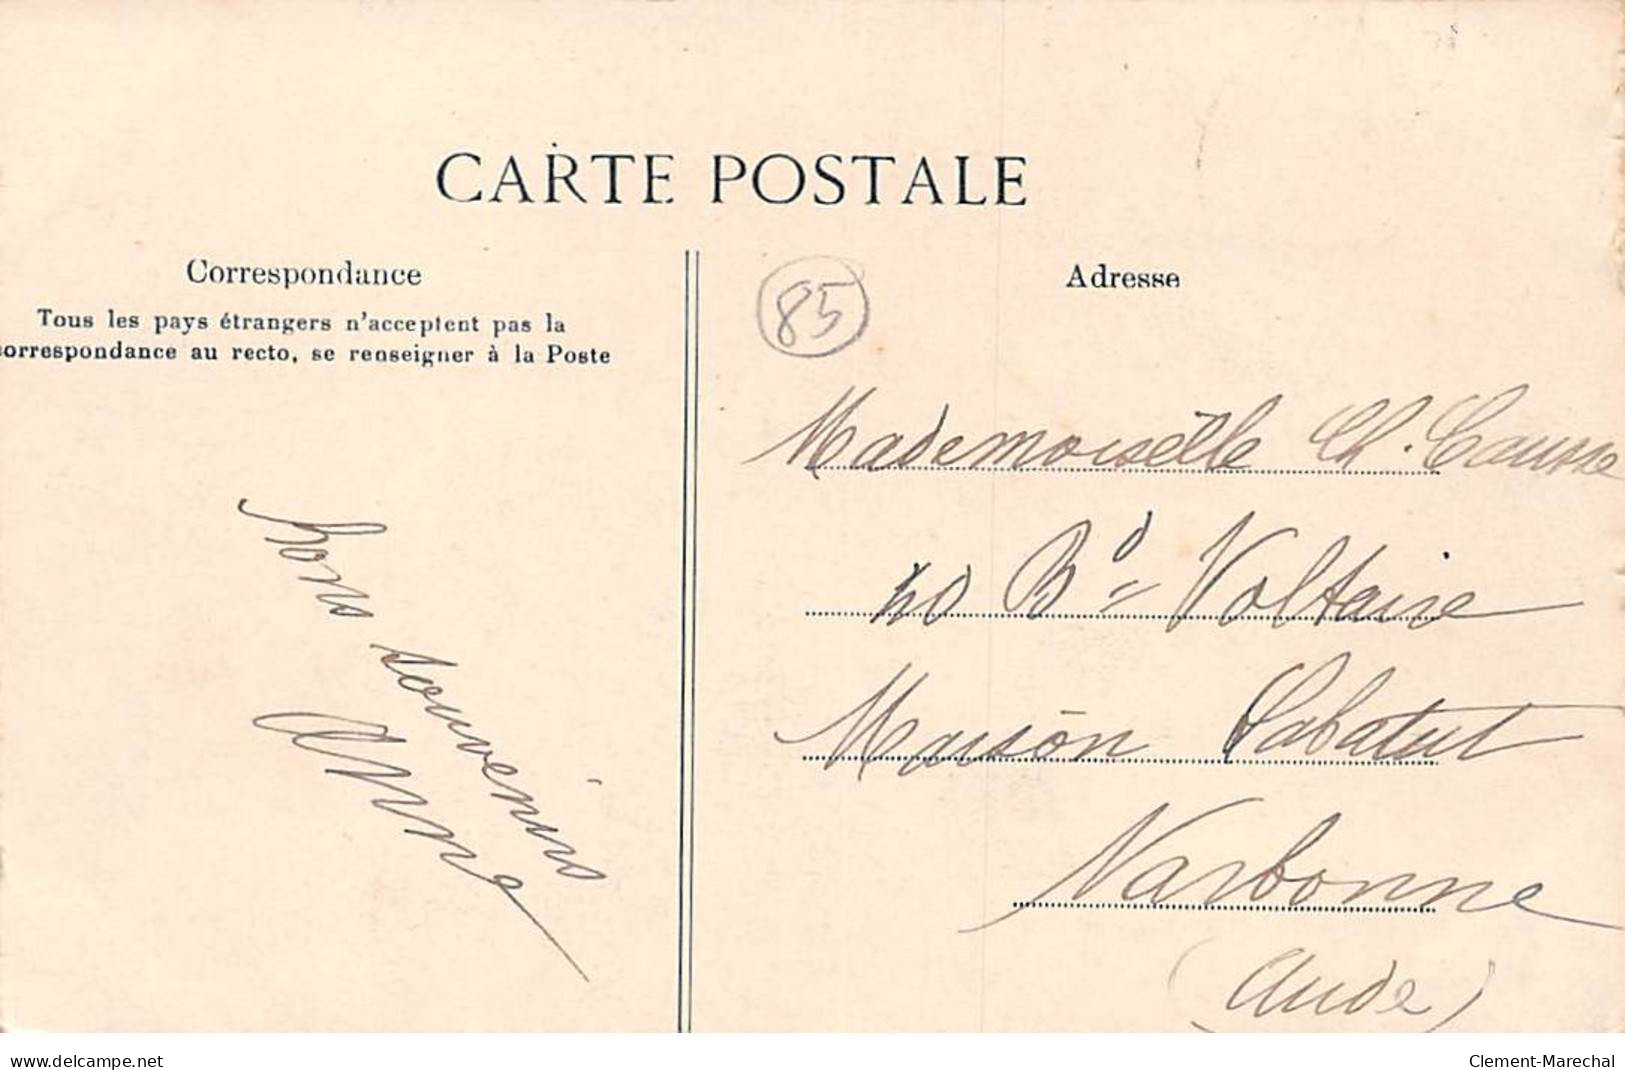 CARTE POSTALE
Correspondance
Tous les pays étrangers n'acceptent pas la
correspondance au recto, se renseigner à la Poste
bons souvenirs
Anne
85
Adresse
Mademoiselle Ch. Causse
40 Bd Voltaire
Maison Labatut
Narbonne
(Aude)
www.delcampe.net
Clement-Marechal